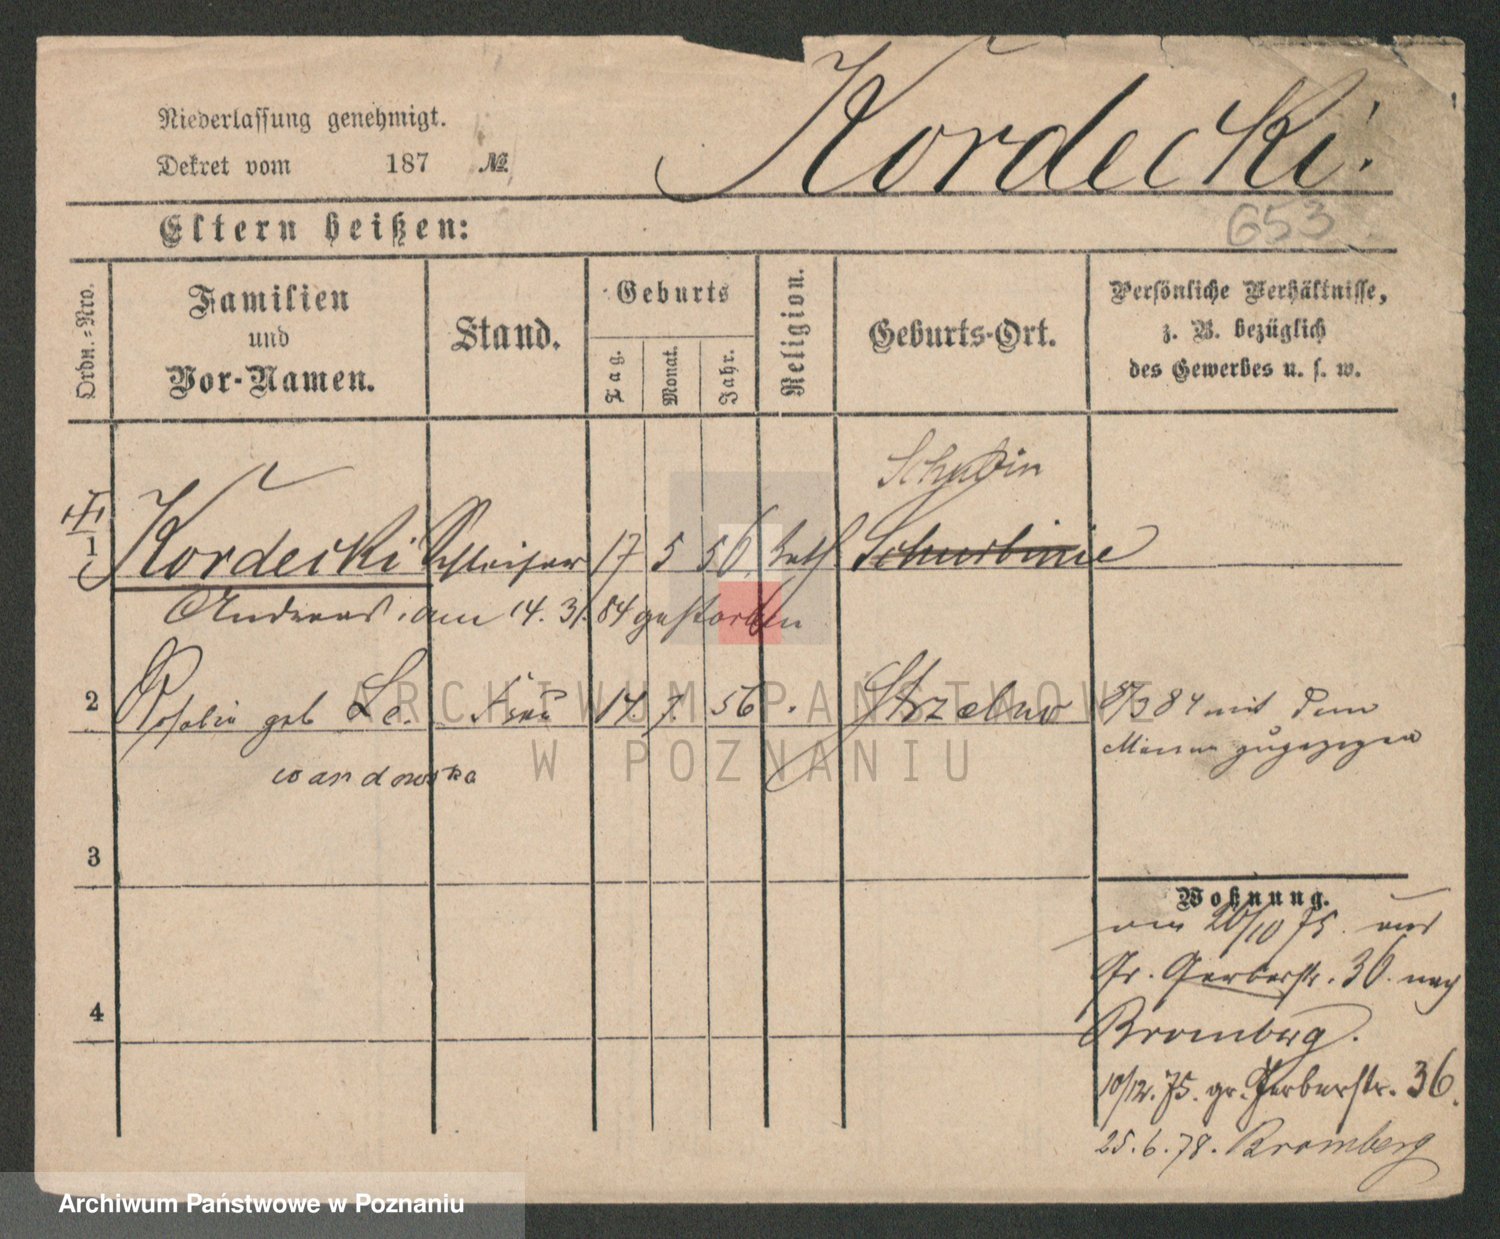 Kordecki.
Niederlassung genehmigt.
Dekret vom 187 №.
653
Eltern heißen:
Ordn.-Nro.
Familien
und
Vor-Namen.
Stand.
Geburts
Tag.
Monat.
Jahr.
Religion.
Geburts-Ort.
Persönliche Verhältnisse,
z. B. bezüglich
des Gewerbes u. s. w.
Schubin
1 Kordecki Schleifer 17 5 56 kath
Andreas. am 14. 3. 84 gestorben
2 Rosalie geb Le- Frau 14 7. 56 Strzelno 8/3 84 mit dem
wandowska
Manne zugezogen
3
Wohnung.
am 20/10 75. aus
Gr. Gerberstr. 36. nach
4
Bromberg.
10/12. 75. gr. Gerberstr. 36.
25. 6. 78. Bromberg
ARCHIWUM PAŃSTWOWE
W POZNANIU
Archiwum Państwowe w Poznaniu